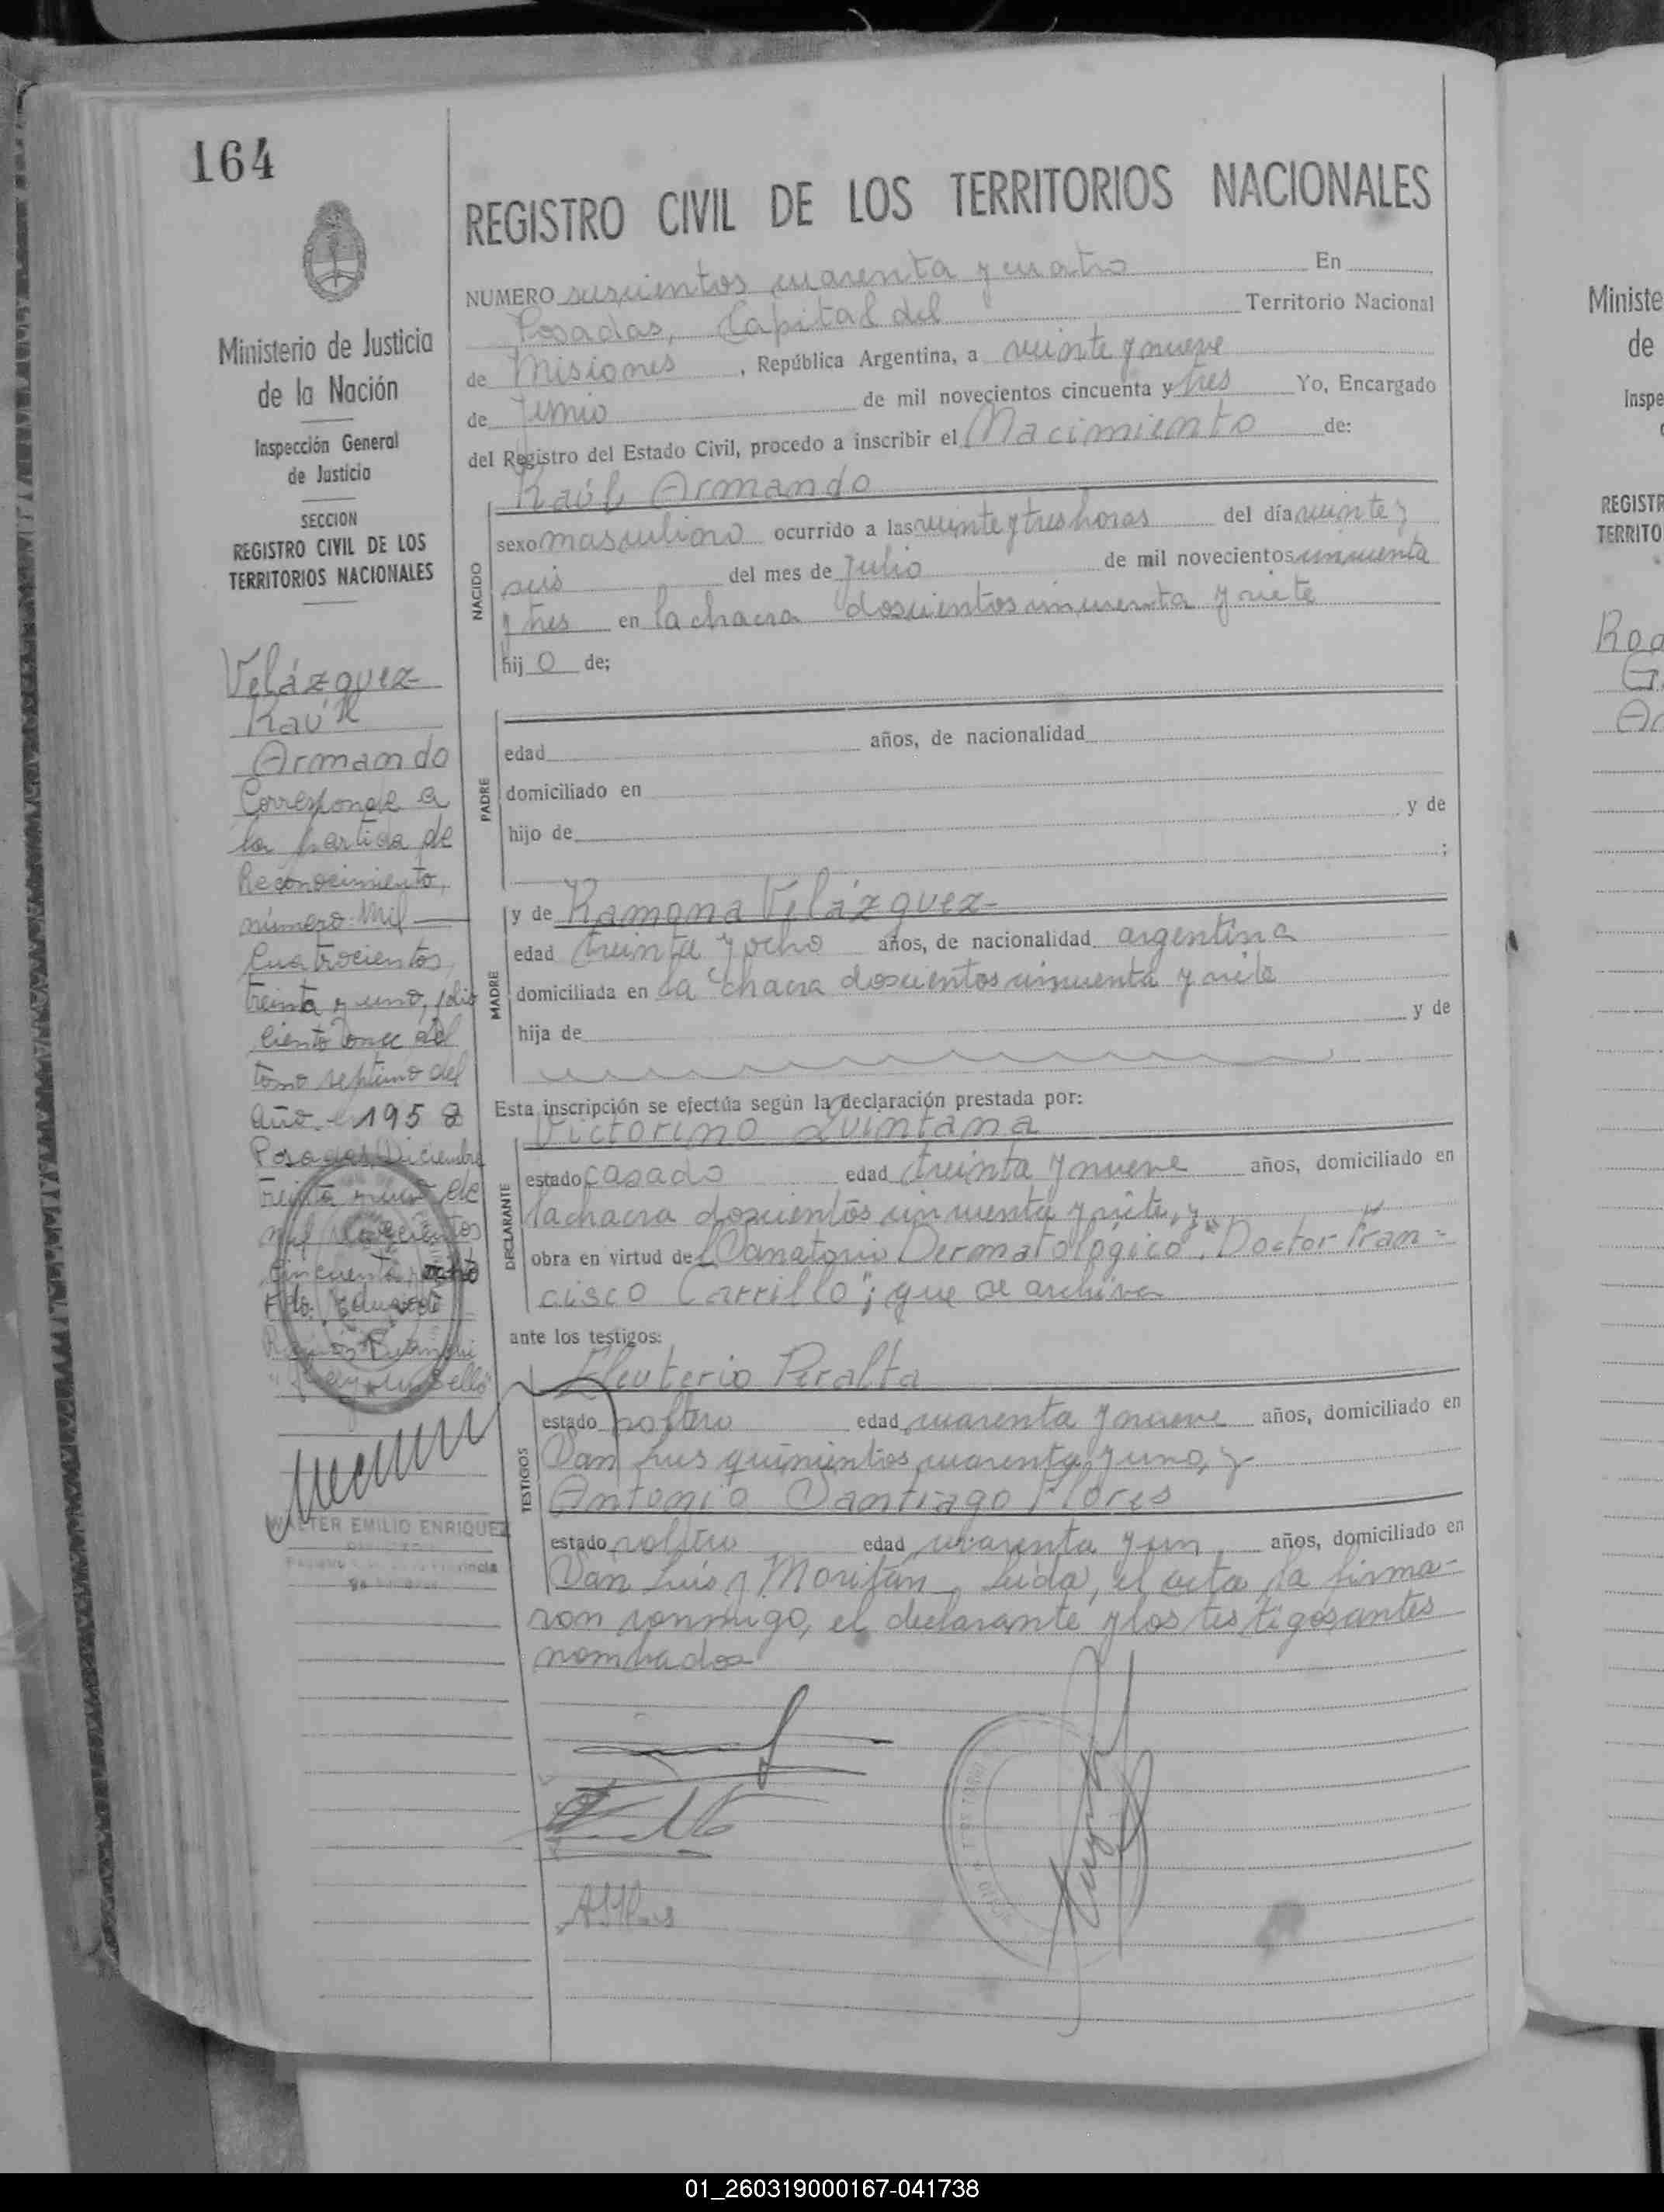 164
REGISTRO CIVIL DE LOS TERRITORIOS NACIONALES
NUMERO seiscientos cuarenta y cuatro En
Posadas, Capital del Territorio Nacional
de Misiones, República Argentina, a veinte y nueve
de Junio de mil novecientos cincuenta y tres Yo, Encargado
del Registro del Estado Civil, procedo a inscribir el Nacimiento de:
Ministerio de Justicia
de la Nación
Inspección General
de Justicia
SECCION
REGISTRO CIVIL DE LOS
TERRITORIOS NACIONALES
Velázquez-
Raúl
Armando
Corresponde a
la partida de
Reconocimiento,
número Mil
Cuatrocientos
treinta y uno, folio
ciento once del
tomo septimo del
año 1958
Posadas, Diciembre
treinta y uno de
mil novecientos
cincuenta y ocho
Fdo. Eduardo
Ramón
WALTER EMILIO ENRIQUEZ
NACIDO
Raúl Armando
sexo masculino ocurrido a las veinte y tres horas del día veinte y
seis del mes de Julio de mil novecientos cincuenta
y tres en la chacra doscientos cincuenta y siete
hij o de;
PADRE
edad años, de nacionalidad
domiciliado en
hijo de y de
;
MADRE
y de Ramona Velázquez-
edad treinta y ocho años, de nacionalidad argentina
domiciliada en la chacra doscientos cincuenta y siete
hija de y de
Esta inscripción se efectúa según la declaración prestada por:
DECLARANTE
Victorino Quintana
estado casado edad treinta y nueve años, domiciliado en
la chacra doscientos cincuenta y siete, y
obra en virtud del Sanatorio Dermatológico "Doctor Fran=
cisco Carrillo"; que se archiva
ante los testigos:
TESTIGOS
Eleuterio Peralta
estado soltero edad cuarenta y nueve años, domiciliado en
San Luis quinientos cuarenta y uno, y
Antonio Santiago Flores
estado soltero edad cuarenta y un años, domiciliado en
San Luis y Moritán. Leida, el acta, la firma-
ron conmigo, el declarante y los testigos antes
nombrados
Ministe
de
Inspe
REGISTR
TERRITO
01_260319000167-041738